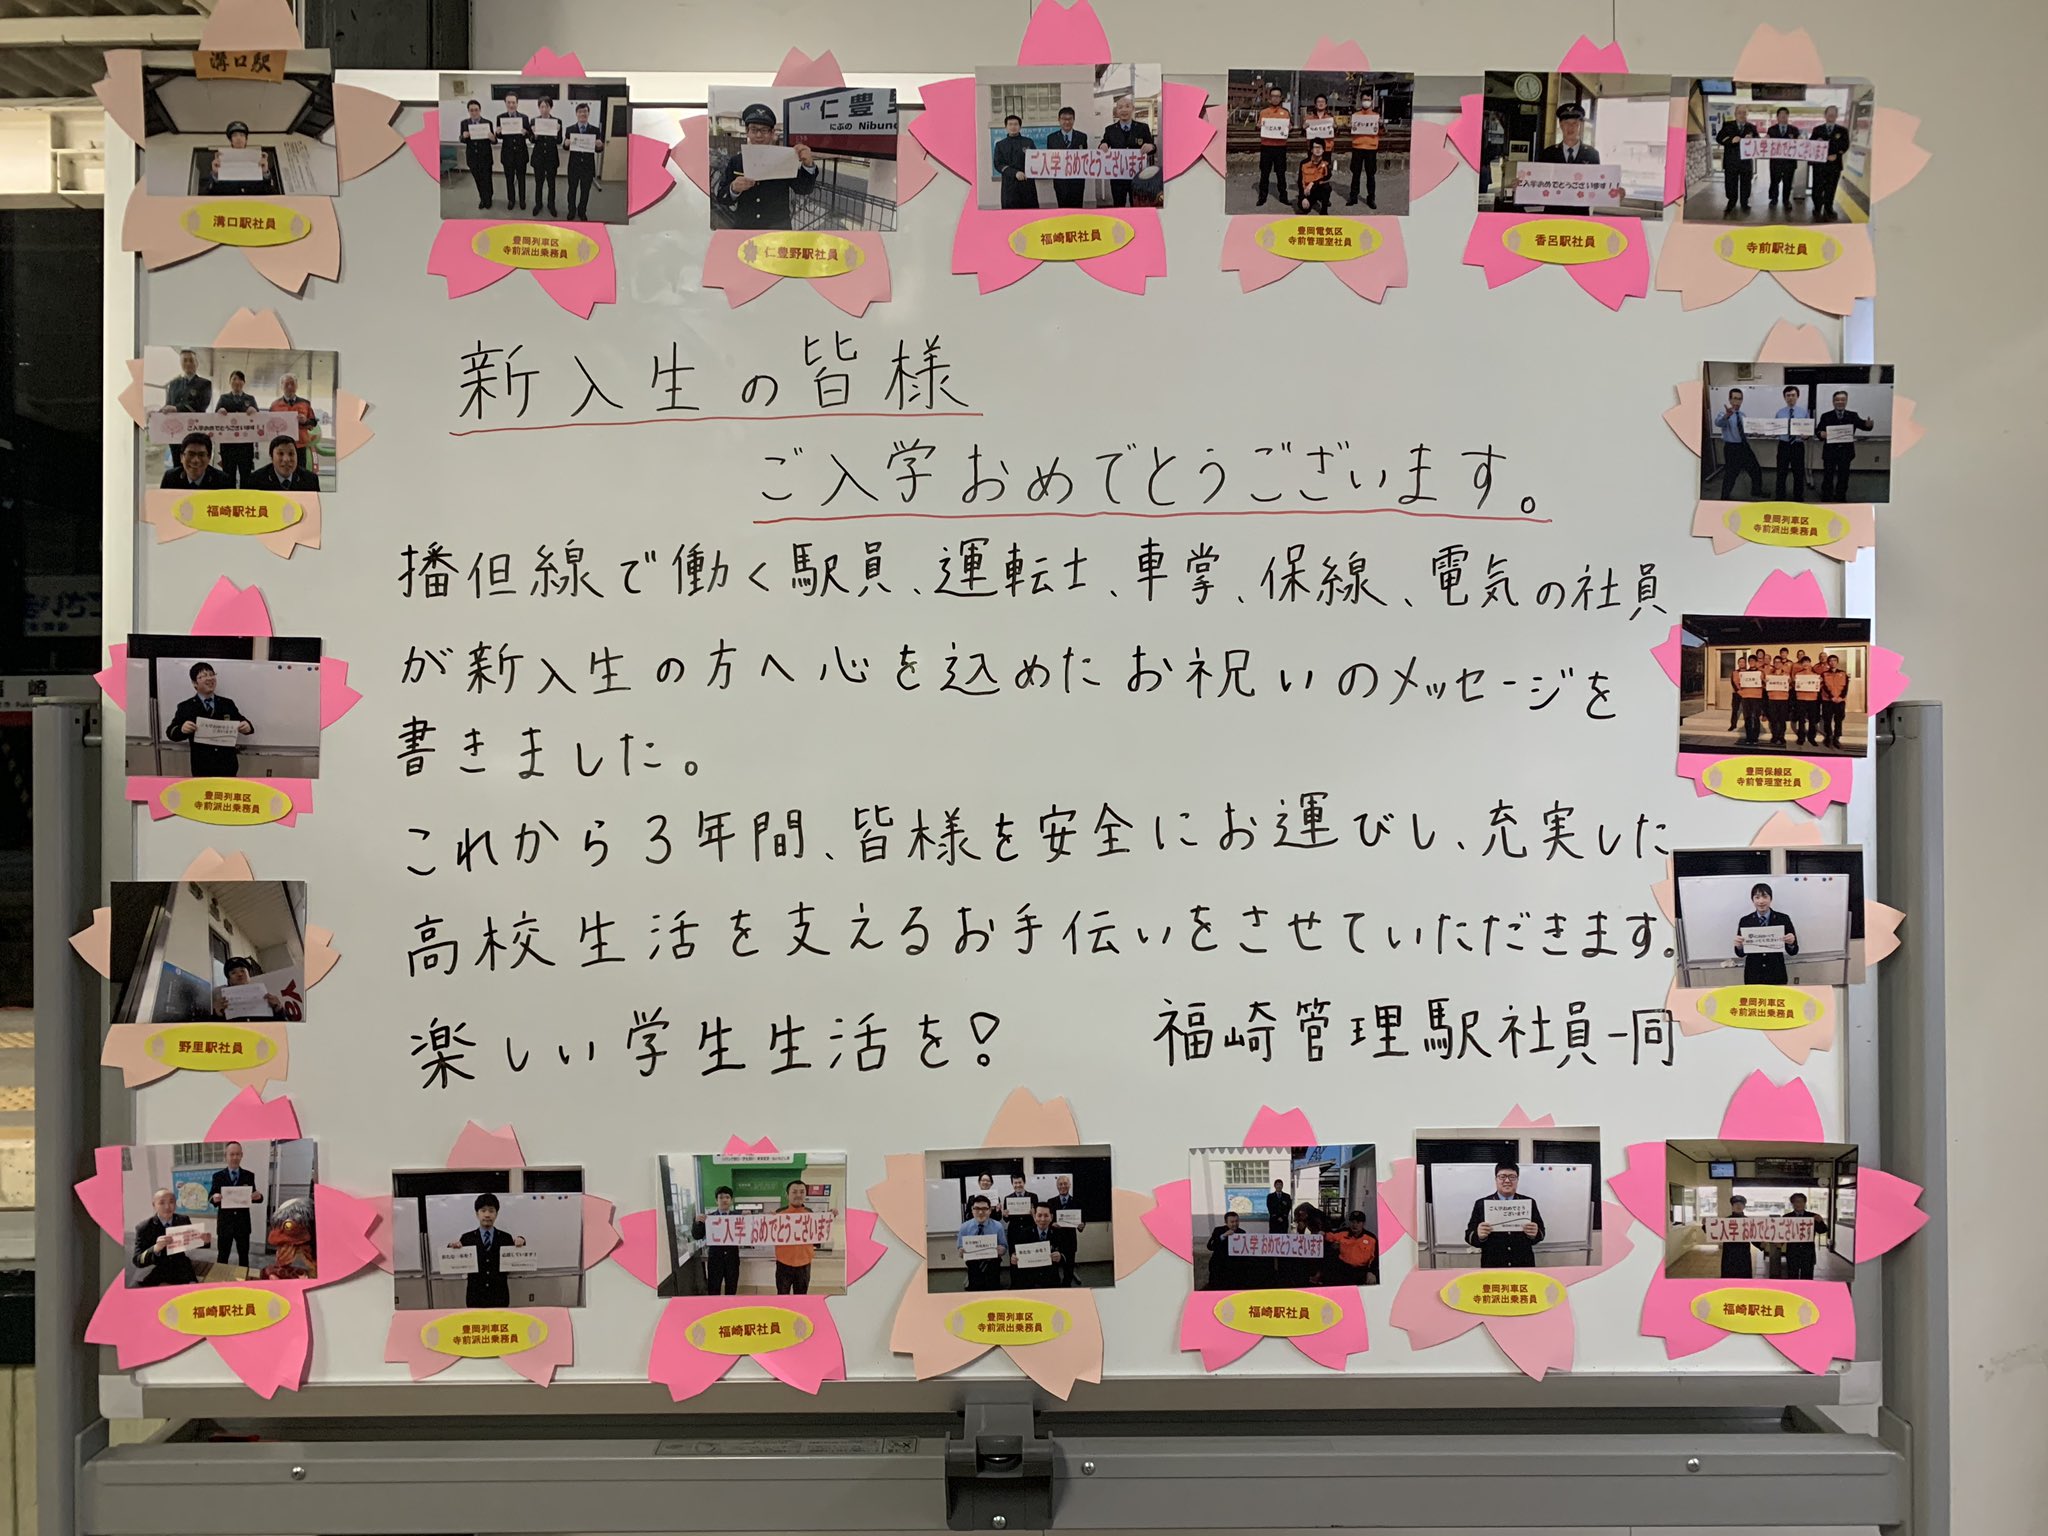 溝口駅
溝口駅社員
豊岡列車区
寺前派出乗務員
JR 仁豊野
にぶの Nibuno
仁豊野駅社員
ご入学おめでとうございます
福崎駅社員
豊岡電気区
寺前管理室社員
ご入学おめでとうございます!!
香呂駅社員
ご入学おめでとうございます
寺前駅社員
ご入学おめでとうございます!!
福崎駅社員
豊岡列車区
寺前派出乗務員
新入生の皆様
ご入学おめでとうございます。
播但線で働く駅員、運転士、車掌、保線、電気の社員
が新入生の方へ心を込めたお祝いのメッセージを
書きました。
これから3年間、皆様を安全にお運びし、充実した
高校生活を支えるお手伝いをさせていただきます。
楽しい学生生活を!
福崎管理駅社員一同
豊岡列車区
寺前派出乗務員
豊岡保線区
寺前管理室社員
野里駅社員
豊岡列車区
寺前派出乗務員
福崎駅社員
豊岡列車区
寺前派出乗務員
ご入学おめでとうございます
福崎駅社員
豊岡列車区
寺前派出乗務員
ご入学おめでとうございます
福崎駅社員
ご入学おめでとう
ございます!
豊岡列車区
寺前派出乗務員
ご入学おめでとうございます
福崎駅社員